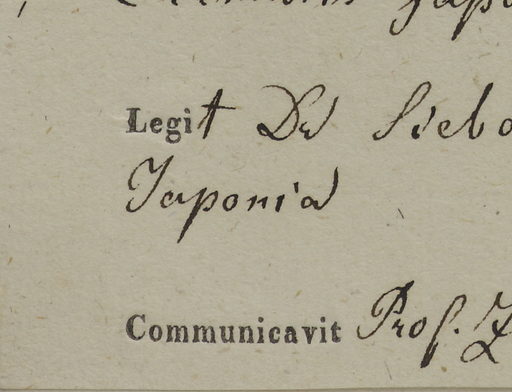 Legit Dr Siebo
Japonia
Communicavit Prof. Z